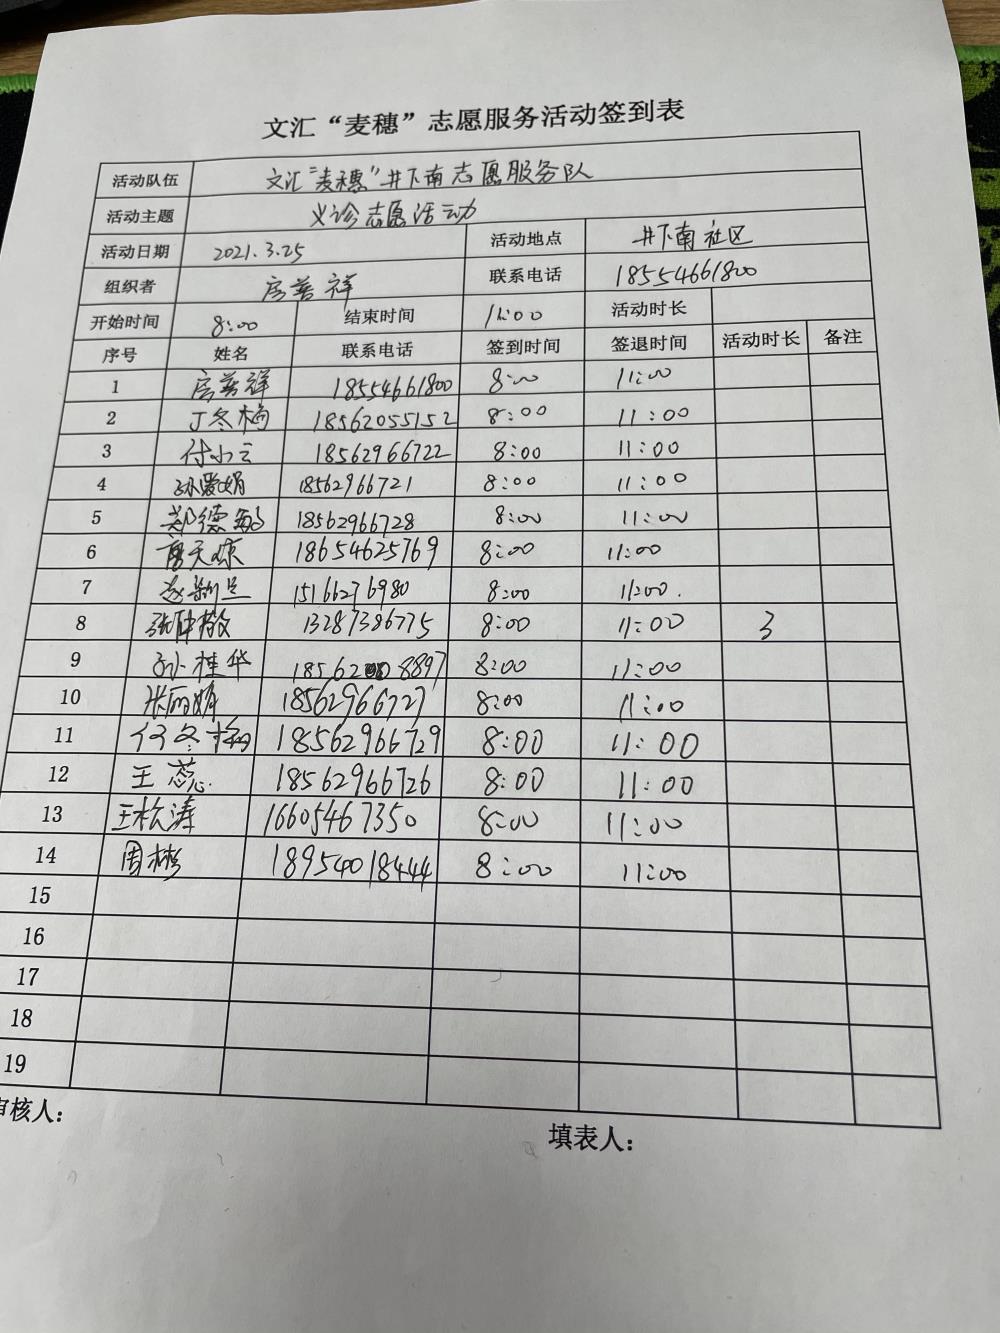 文汇“麦穗”志愿服务活动签到表
活动队伍 文汇“麦穗”井下南志愿服务队
活动主题 义诊志愿活动
活动日期 2021.3.25 活动地点 井下南社区
组织者 房善祥 联系电话 18554661800
开始时间 8:00 结束时间 11:00 活动时长
序号 姓名 联系电话 签到时间 签退时间 活动时长 备注
1 房善祥 18554661800 8:00 11:00
2 丁冬梅 18562055152 8:00 11:00
3 付小云 18562966722 8:00 11:00
4 孙爱娟 18562966721 8:00 11:00
5 郑德敏 18562966728 8:00 11:00
6 18654625769 8:00 11:00
7 15166276980 8:00 11:00.
8 张仲敬 13287386775 8:00 11:00 3
9 孙桂华 8:00 11:00
10 张丽娟 18562966727 8:00 11:00
11 何冬梅 18562966729 8:00 11:00
12 王蕊 18562966726 8:00 11:00
13 王松涛 16605467350 8:00 11:00
14 周彬 18954018444 8:00 11:00
15
16
17
18
19
审核人：
填表人：